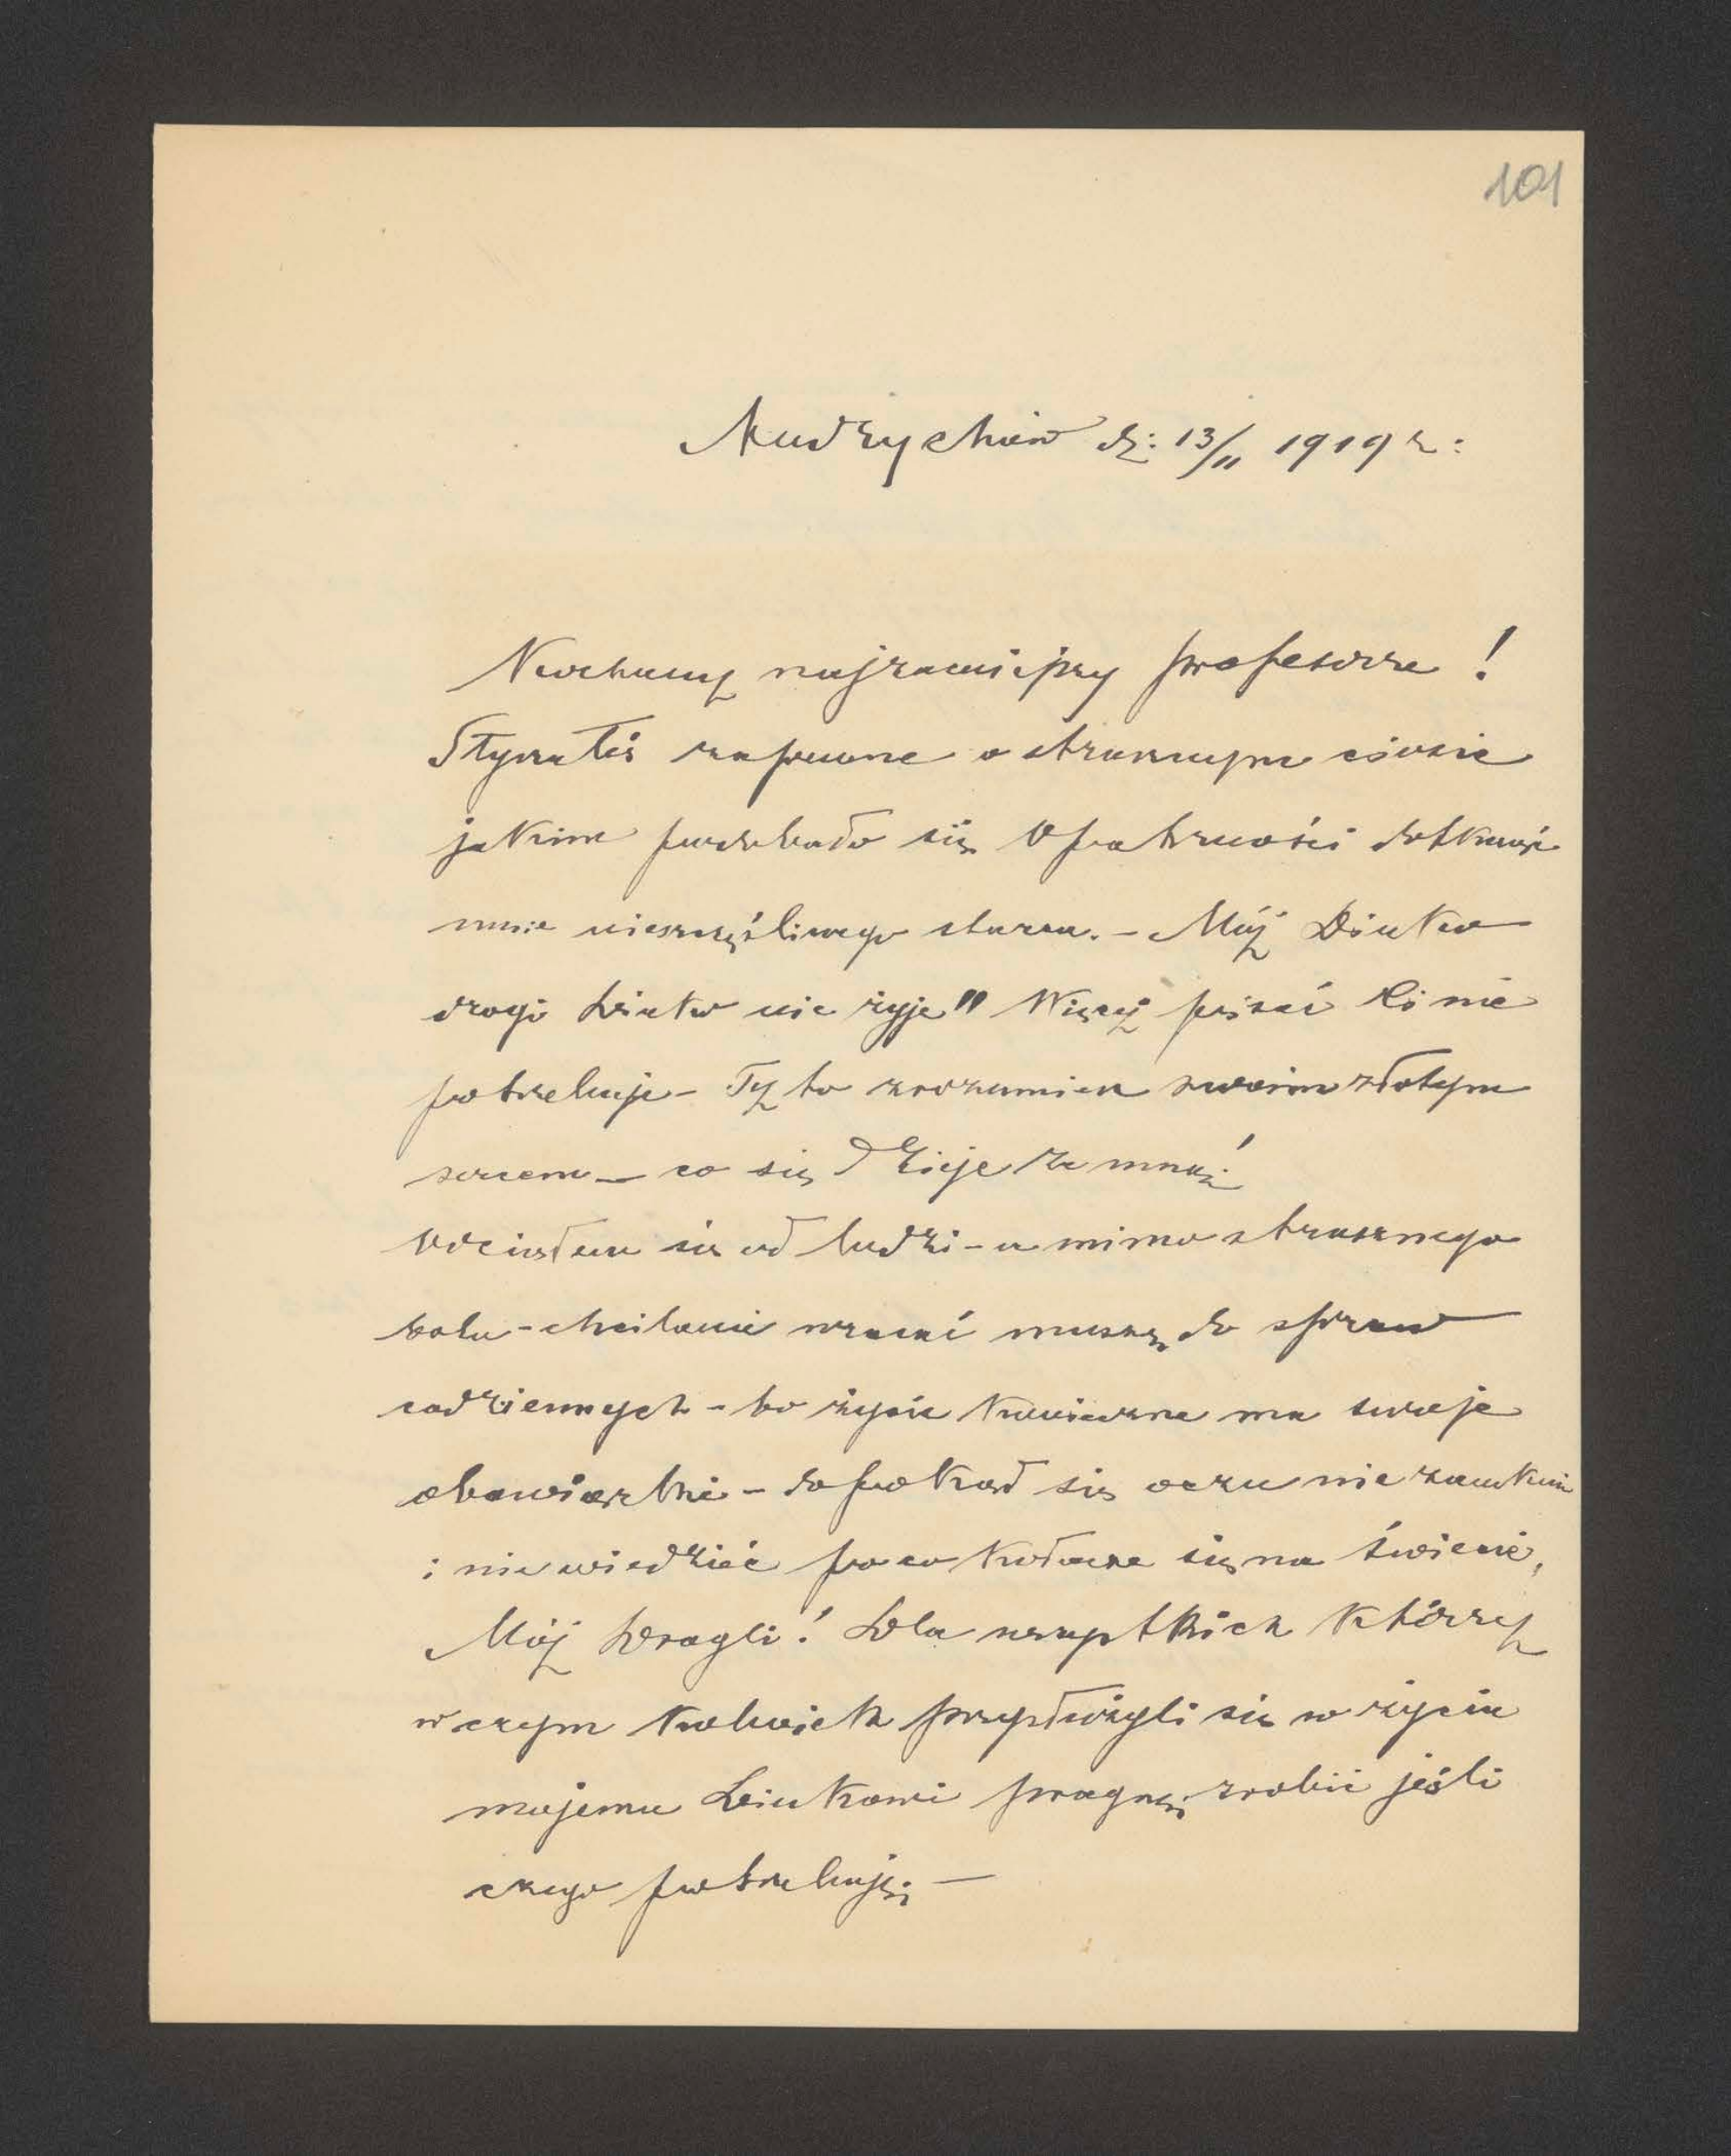 101
Andrychów dz: 13/11 1919 r:
Kochany najzacniejszy profesorze!
Słyszałeś zapewne o strasznym ciosie
jakim podobało się Opatrzności dotknąć
mnie nieszczęśliwego starca. - Mój Dziutko
drogi Dziutko nie żyje" Więcej pisać Ci nie
potrzebuję - Ty to zrozumiesz swoim złotym
sercem - co się dzieje ze mną!
Odciąłem się od ludzi - a mimo strasznego
bolu - chwilowie wracać muszę do spraw
codziennych - bo życie konieczne ma swoje
obowiązki - dopokąd się oczu nie zamknie
i nie wiedzieć po co kołacze się na świecie,
Mój Drogi! Dla wszystkich którzy
w czym kolwiek przysłużyli się w życiu
mojemu Dziutkowi pragnę zrobić jeśli
czego potrzebują; -